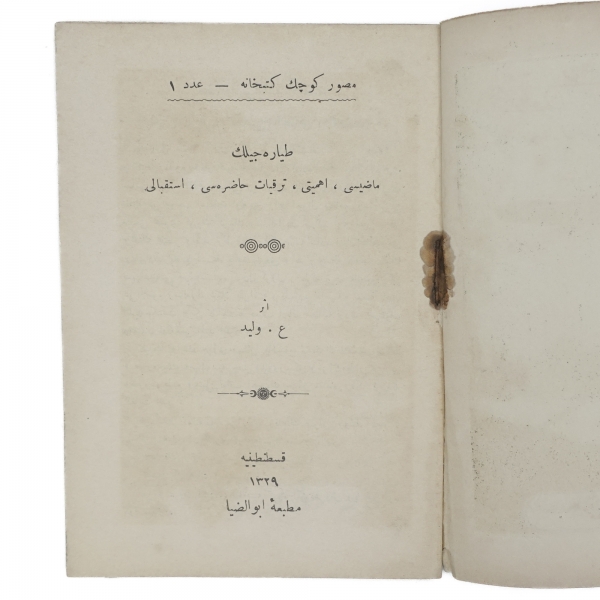 مصور كوچك كتبخانه — عدد ١
طياره جيلك
ماضيسى ، اهميتى ، ترقيات حاضره‌سى ، استقبالى
اثر
ع . وليد
قسطنطينيه
١٣٢٩
مطبعهٔ ابوالضيا